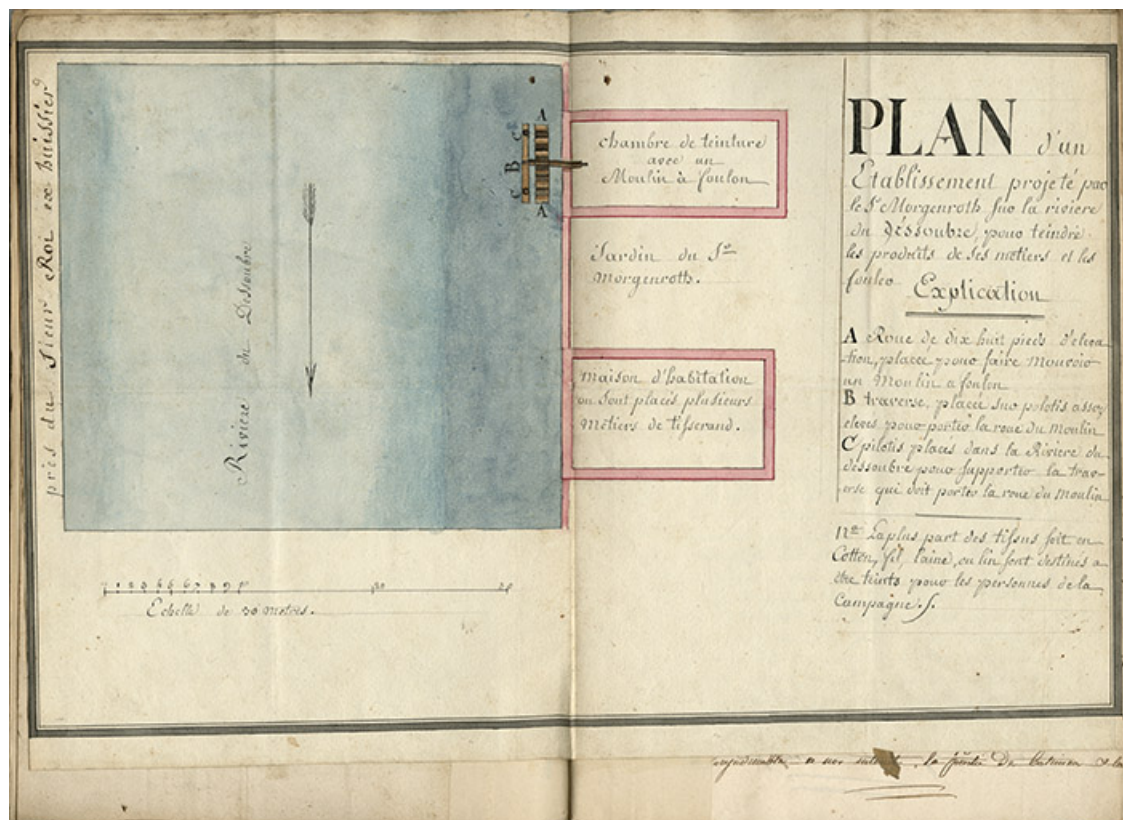 près du Sieur Roi ex huissier
Riviere du Dessoubre
A
C
B
C
A
chambre de teinture
avec un
Moulin à foulon
Jardin du Sr
Morgenroth.
maison d'habitation
ou sont placés plusieurs
métiers de tisserand.
PLAN d'un
Etablissement projeté par
le Sr Morgenroth sur la riviere
du Dessoubre, pour teindre
les produits de ses métiers et les
fouler
Explication
A Roue de dix huit pieds d'eleva
tion, placée pour faire mouvoir
un Moulin a foulon
B traverse, placée sur pilotis assez
elevés pour porter la roue du moulin
C pilotis placés dans la Riviere du
dessoubre pour supporter la trav-
erse qui doit porter la roue du moulin
Na La plus part des tissus soit en
Cotton, fil, laine, ou lin sont destinés a
etre teints pour les personnes de la
Campagne.
1 2 3 4 5 6 7 8 9 20
Echelle de 30 metres.
la